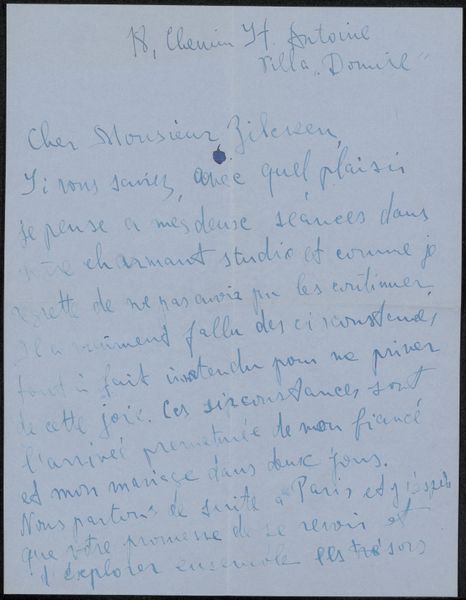 18, Chemin St. Antoine
Villa „Domile"
Cher Monsieur Zilcken,
Si vous saviez, avec quel plaisir
je pense a mes deuse séances dans
votre charmant studio et comme je
regrette de ne pas avoir pu les continuer.
Il a vraiment fallu des cisconstences
tout à fait inatendu pour me priver
de cette joie. Ces sirconstances sont
l'arrivée prematurée de mon fiancé
et mon mariage dans deux jours.
Nous partons de suite à Paris et j'espere
que votre promesse de se revoir et
d'explorer ensemble les trésors